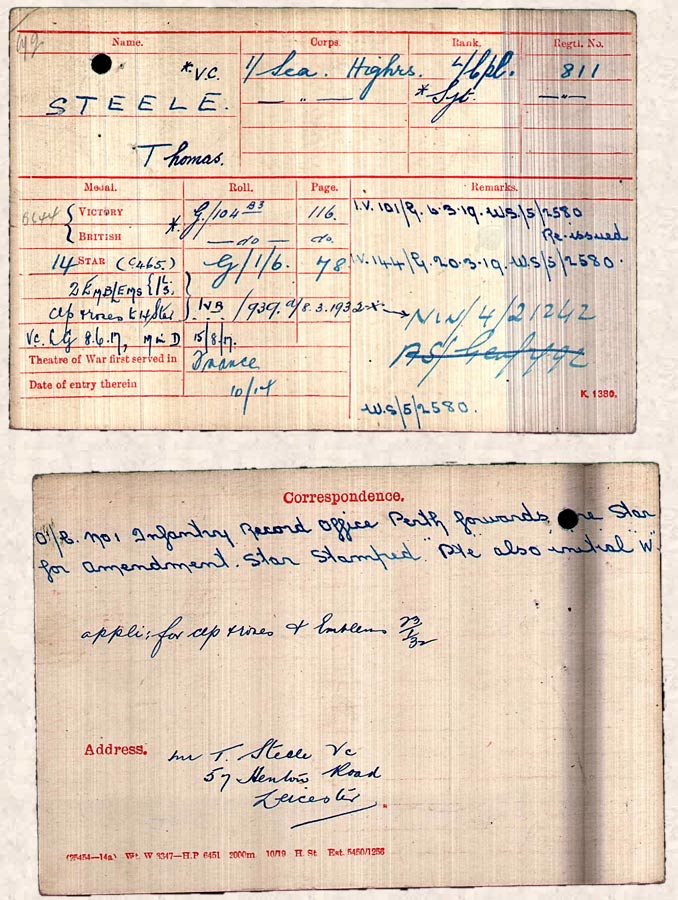 Name. Corps. Rank. Regtl. No.
*V.C. 1/ Sea. Highrs. L/Cpl. 811
STEELE. — " — * Sgt. — " —
Thomas.
Medal. Roll. Page. Remarks.
VICTORY *. G/104 B3 116. I.V. 101/G. 6.3.19. W.S/5/2580
BRITISH — do — do. Re-issued
14 STAR (C465.) G/1/6. 78 I.V. 144/G. 20.3.19. W.S/5/2580.
2 EMBLEMS
clp & roses to 14 Star IVB /939. 8.3.1932 NIN/4/21242
VC. LG 8.6.17, M in D 15/8/17.
Theatre of War first served in France
Date of entry therein 10/14
K. 1380.
W.S/5/2580.
Correspondence.
O i/c. No 1 Infantry Record Office Perth forwards Star
for amendment. Star Stamped "Pte" also initial "W".
appli: for clp & roses & Emblem 23/1/32
Address. Mr T. Steele VC
57 Henton Road
Leicester
(25454—14a) Wt. W 3347—H.P 6451 2000m 10/19 H. St Est. 5450/1256